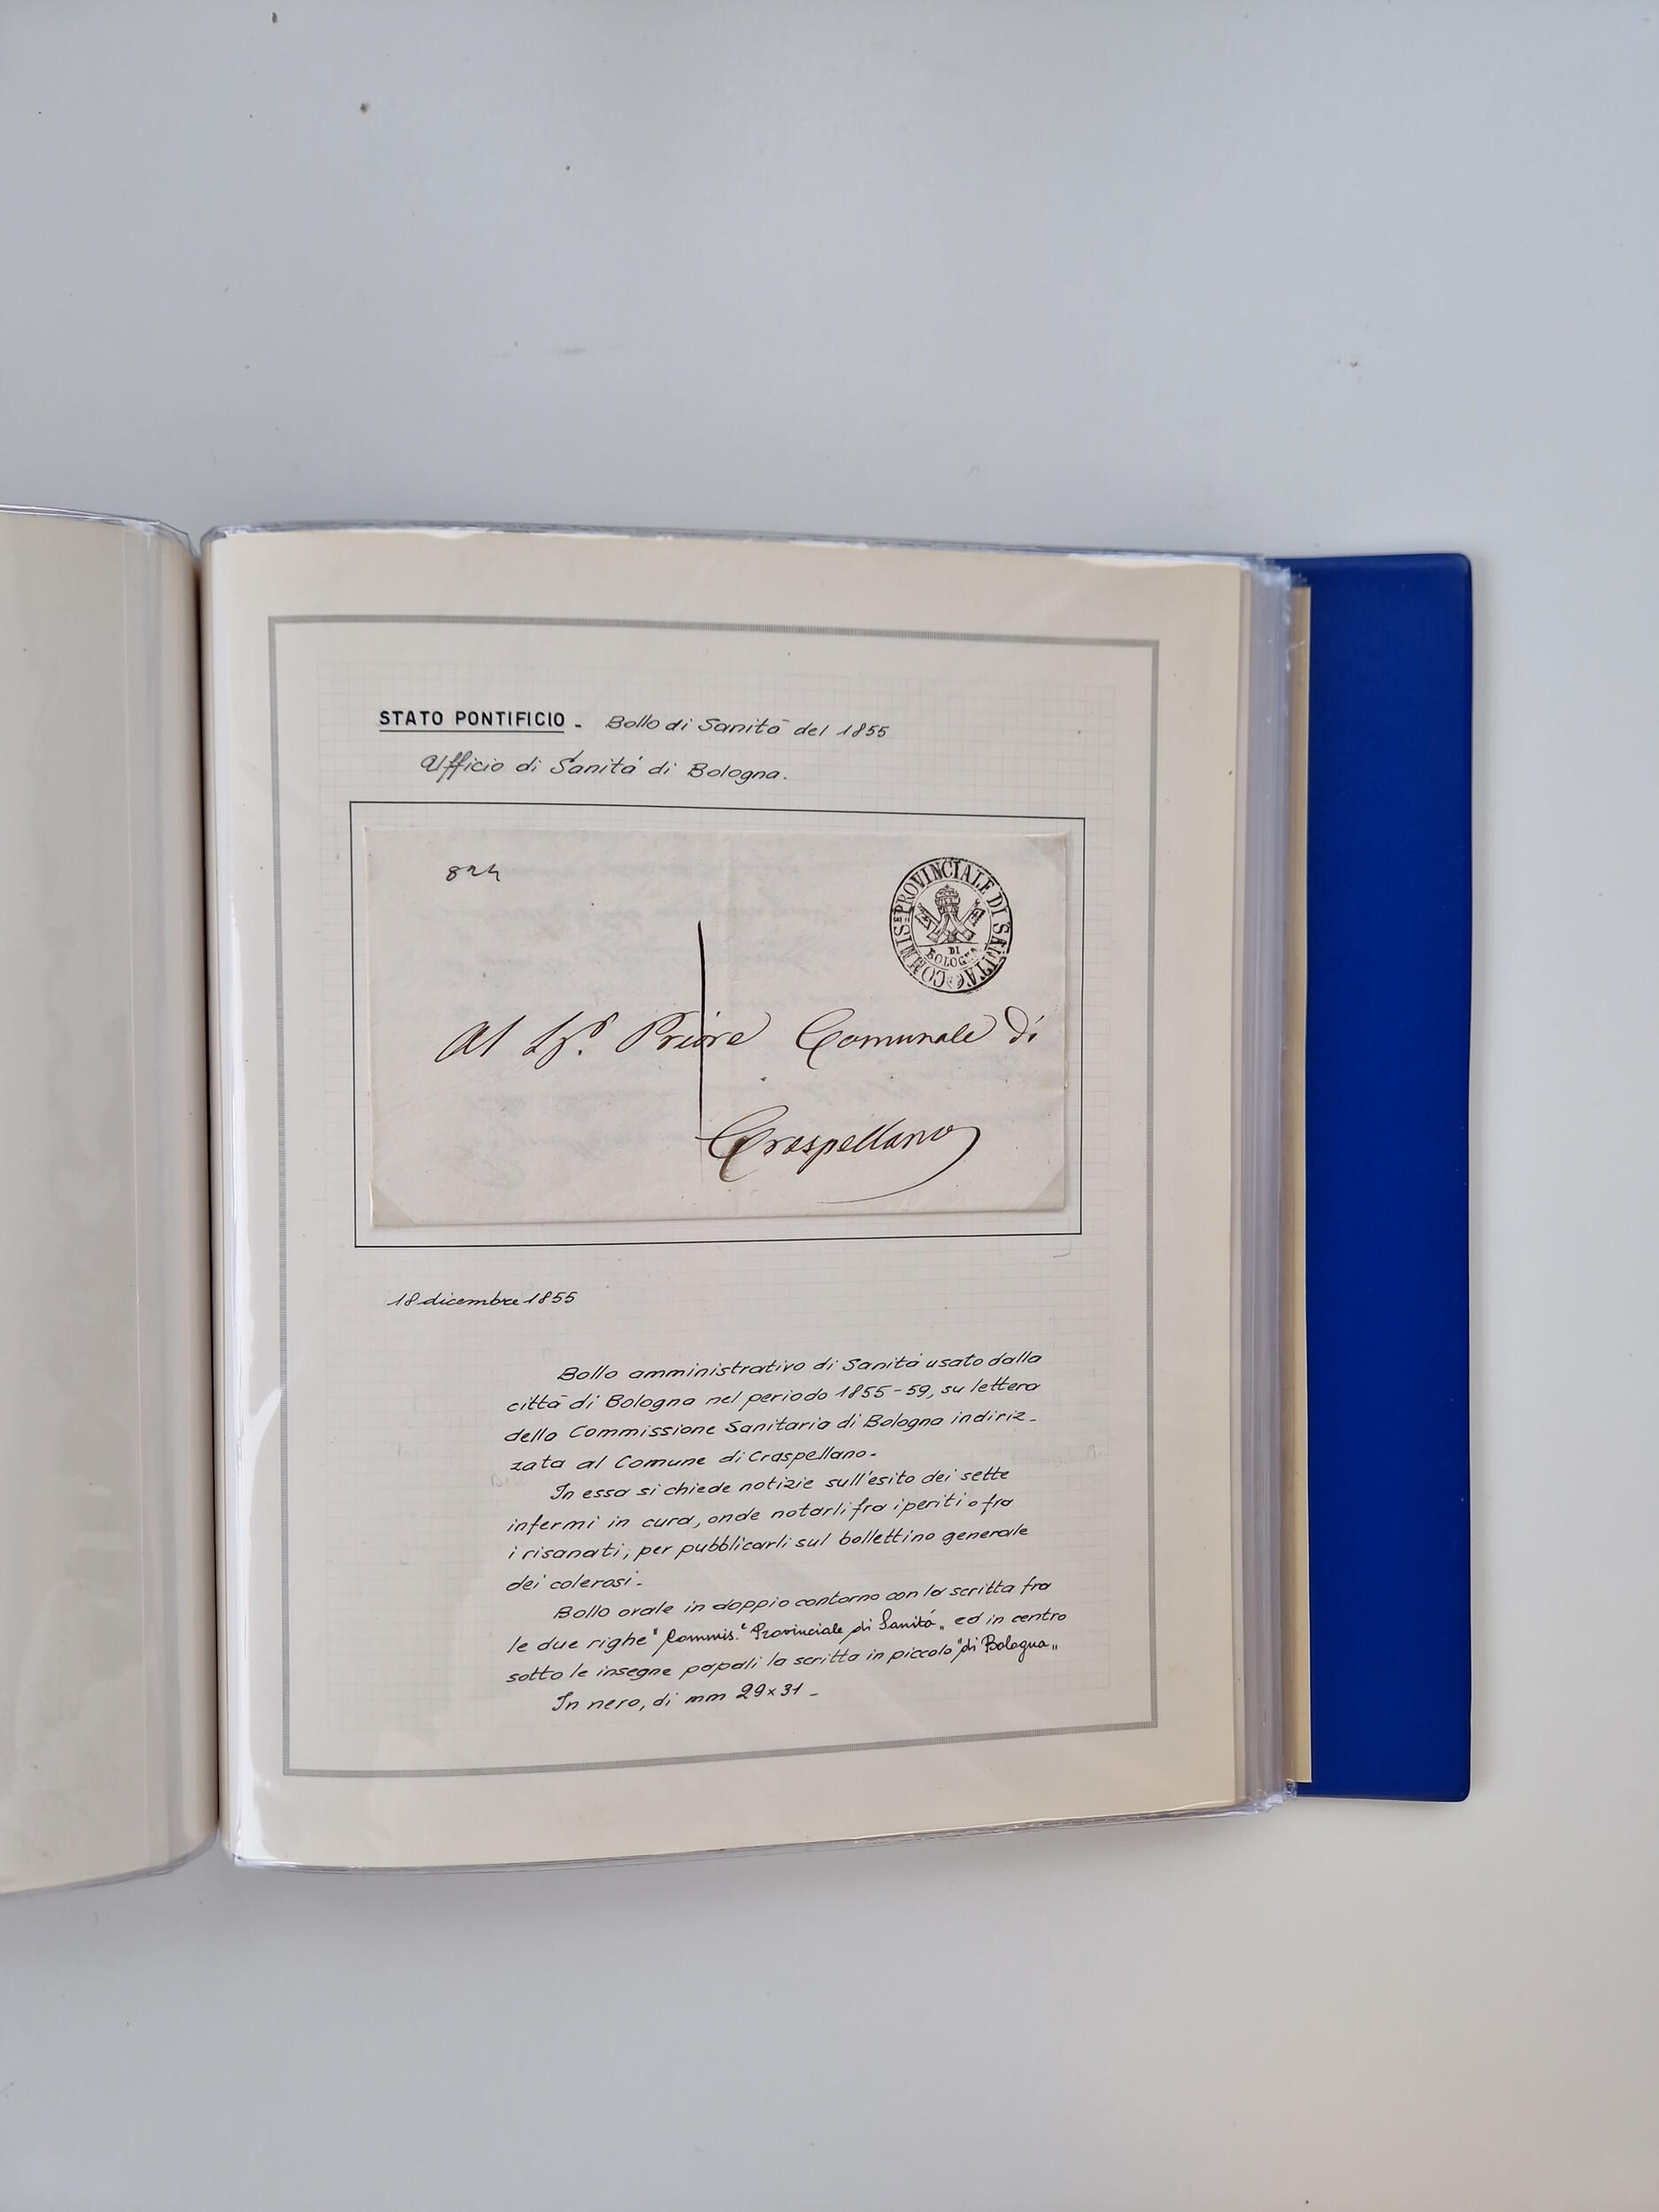 STATO PONTIFICIO - Bollo di Sanità del 1855
Ufficio di Sanitá di Bologna.
824
COMMIS.E PROVINCIALE DI SANITA
DI
BOLOGNA
Al Priore Comunale di
Craspellano
18 dicembre 1855
Bollo amministrativo di Sanitá usato dalla
cittá di Bologna nel periodo 1855-59, su lettera
della Commissione Sanitaria di Bologna indiriz-
zata al Comune di Craspellano-
In essa si chiede notizie sull'esito dei sette
infermi in cura, onde notarli fra i periti o fra
i risanati, per pubblicarli sul bollettino generale
dei colerosi-
Bollo ovale in doppio contorno con la scritta fra
le due righe "Commis.e Provinciale di Sanitá" ed in centro
sotto le insegne papali la scritta in piccolo "di Bologna"
In nero, di mm 29x31-